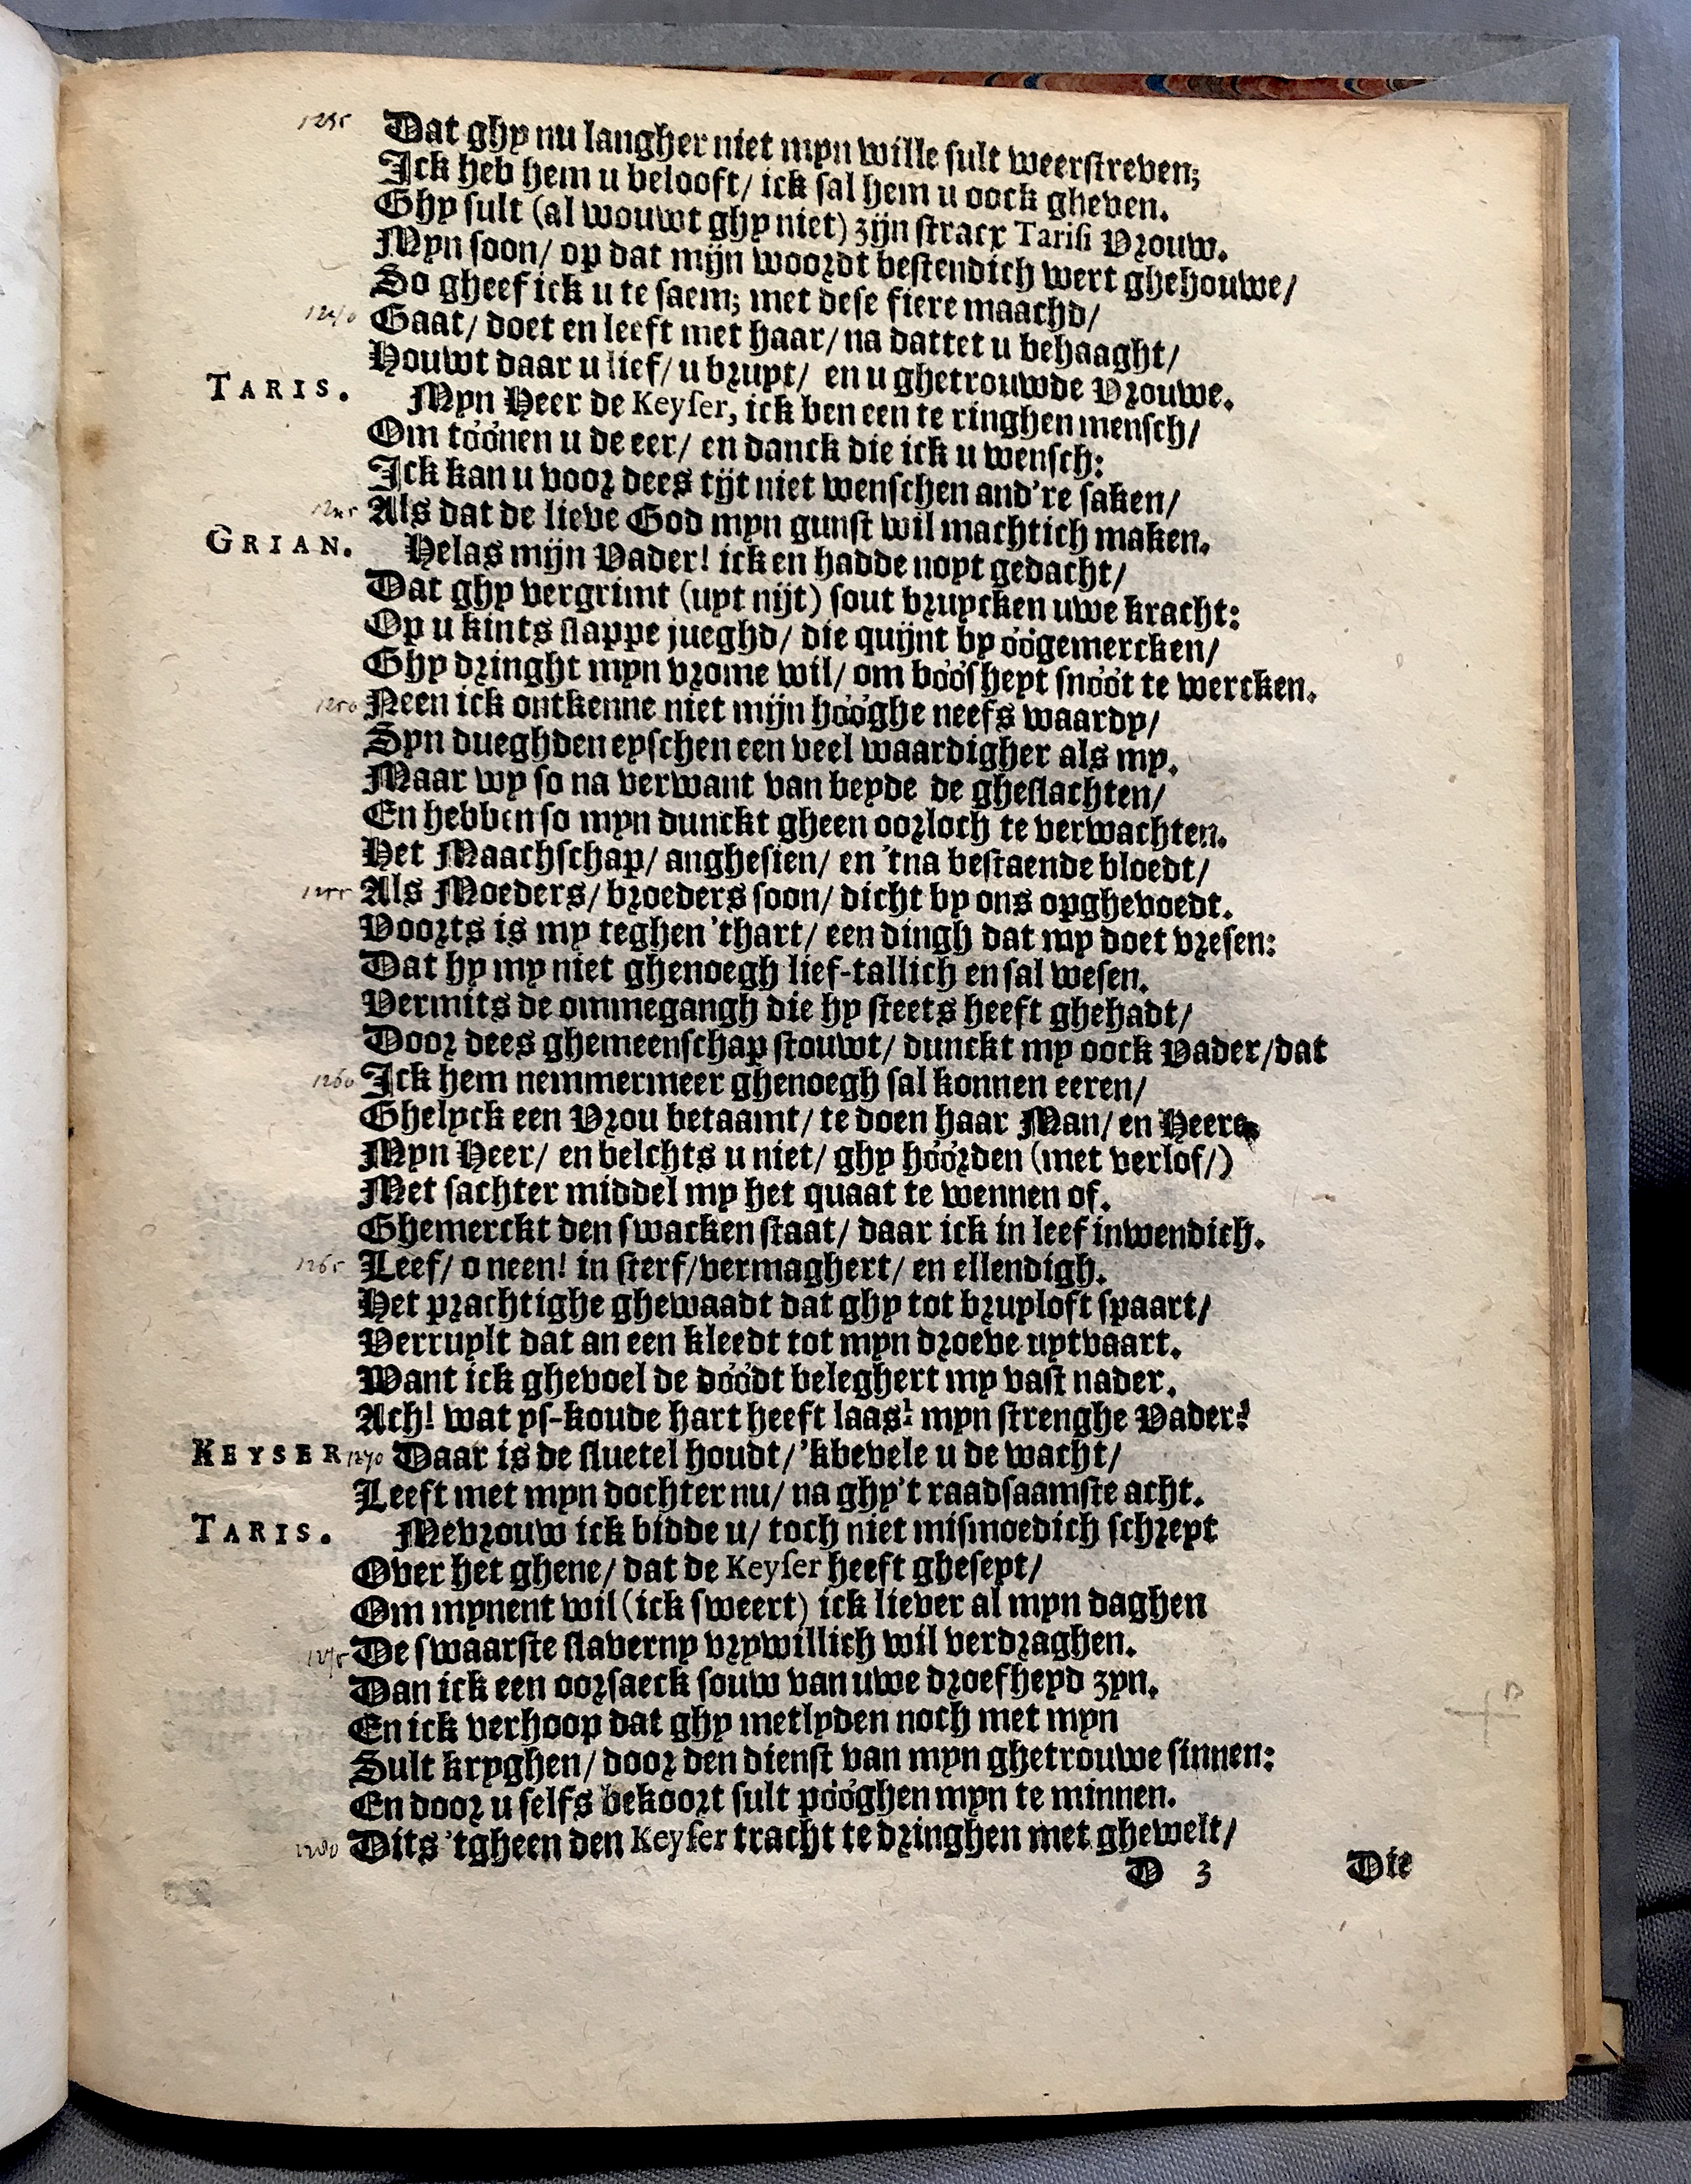 1235 Dat ghy nu langher niet myn wille sult weerstreven;
Ick heb hem u belooft/ ick sal hem u oock gheven.
Ghy sult (al wouwt ghy niet) zijn stracx Tarisi Vrouw.
Myn soon/ op dat mijn woordt bestendich wert ghehouwe/
So gheef ick u te saem; met dese fiere maachd/
1240 Gaat/ doet en leeft met haar/ na dattet u behaaght/
Houwt daar u lief/ u bruyt/ en u ghetrouwde Vrouwe.
TARIS. Myn Heer de Keyser, ick ben een te ringhen mensch/
Om tóónen u de eer/ en danck die ick u wensch:
Ick kan u voor dees tijt niet wenschen and're saken/
1245 Als dat de lieve God myn gunst wil machtich maken.
GRIAN. Helas mijn Vader! ick en hadde noyt gedacht/
Dat ghy vergrimt (uyt nijt) sout bruycken uwe kracht:
Op u kints slappe jueghd/ die quijnt by óógemercken/
Ghy dringht myn vrome wil/ om bóósheyt snóót te wercken.
1250 Neen ick ontkenne niet mijn hóóghe neefs waardy/
Syn dueghden eyschen een veel waardigher als my.
Maar wy so na verwant van beyde de gheslachten/
En hebben so myn dunckt gheen oorloch te verwachten.
Het Maachschap/ anghesien/ en 'tna bestaende bloedt/
1255 Als Moeders/ broeders soon/ dicht by ons opghevoedt.
Voorts is my teghen 'thart/ een dingh dat my doet vresen:
Dat hy my niet ghenoegh lief-tallich en sal wesen.
Vermits de ommegangh die hy steets heeft ghehadt/
Door dees ghemeenschap stouwt/ dunckt my oock Vader/dat
1260 Ick hem nemmermeer ghenoegh sal konnen eeren/
Ghelyck een Vrou betaamt/ te doen haar Man/ en Heere
Myn Heer/ en belchts u niet/ ghy hóórden (met verlof/)
Met sachter middel my het quaat te wennen of.
Ghemerckt den swacken staat/ daar ick in leef inwendich.
1265 Leef/ o neen! in sterf/vermaghert/ en ellendigh.
Het prachtighe ghewaadt dat ghy tot bruyloft spaart/
Verruylt dat an een kleedt tot myn droeve uytvaart.
Want ick ghevoel de dóódt beleghert my vast nader.
Ach! wat ys-koude hart heeft laas! myn strenghe Vader?
KEYSER 1270 Daar is de sluetel houdt/ 'kbevele u de wacht/
Leeft met myn dochter nu/ na ghy't raadsaamste acht.
TARIS. Mevrouw ick bidde u/ toch niet mismoedich schreyt
Over het ghene/ dat de Keyser heeft gheseyt/
Om mynent wil (ick sweert) ick liever al myn daghen
1275 De swaarste slaverny vrywillich wil verdraghen.
Dan ick een oorsaeck souw van uwe droefheyd zyn.
En ick verhoop dat ghy metlyden noch met myn
Sult kryghen/ door den dienst van myn ghetrouwe sinnen:
En door u selfs bekoort sult póóghen myn te minnen.
1280 Dits 'tgheen den Keyser tracht te dringhen met ghewelt/
D 3 Die